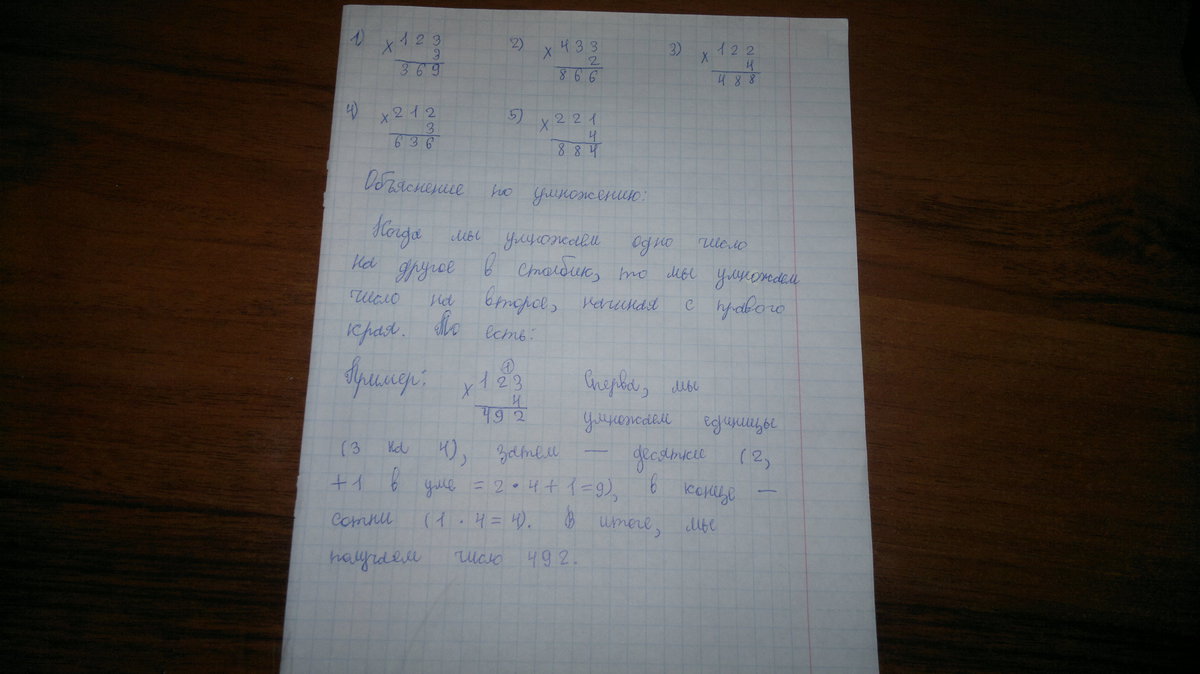 1) 2) 3)
× 1 2 3 × 4 3 3 × 1 2 2
3 2 4
3 6 9 8 6 6 4 8 8
4) 5)
× 2 1 2 × 2 2 1
3 4
6 3 6 8 8 4
Объяснение по умножению:
Когда мы умножаем одно число
на другое в столбик, то мы умножаем
число на второе, начиная с правого
края. То есть:
(1)
Пример: × 1 2 3 Сперва, мы
4
492 умножаем единицы
(3 на 4), затем — десятки (2,
+1 в уме = 2 · 4 + 1 = 9), в конце —
сотни (1 · 4 = 4). В итоге, мы
получаем число 492.